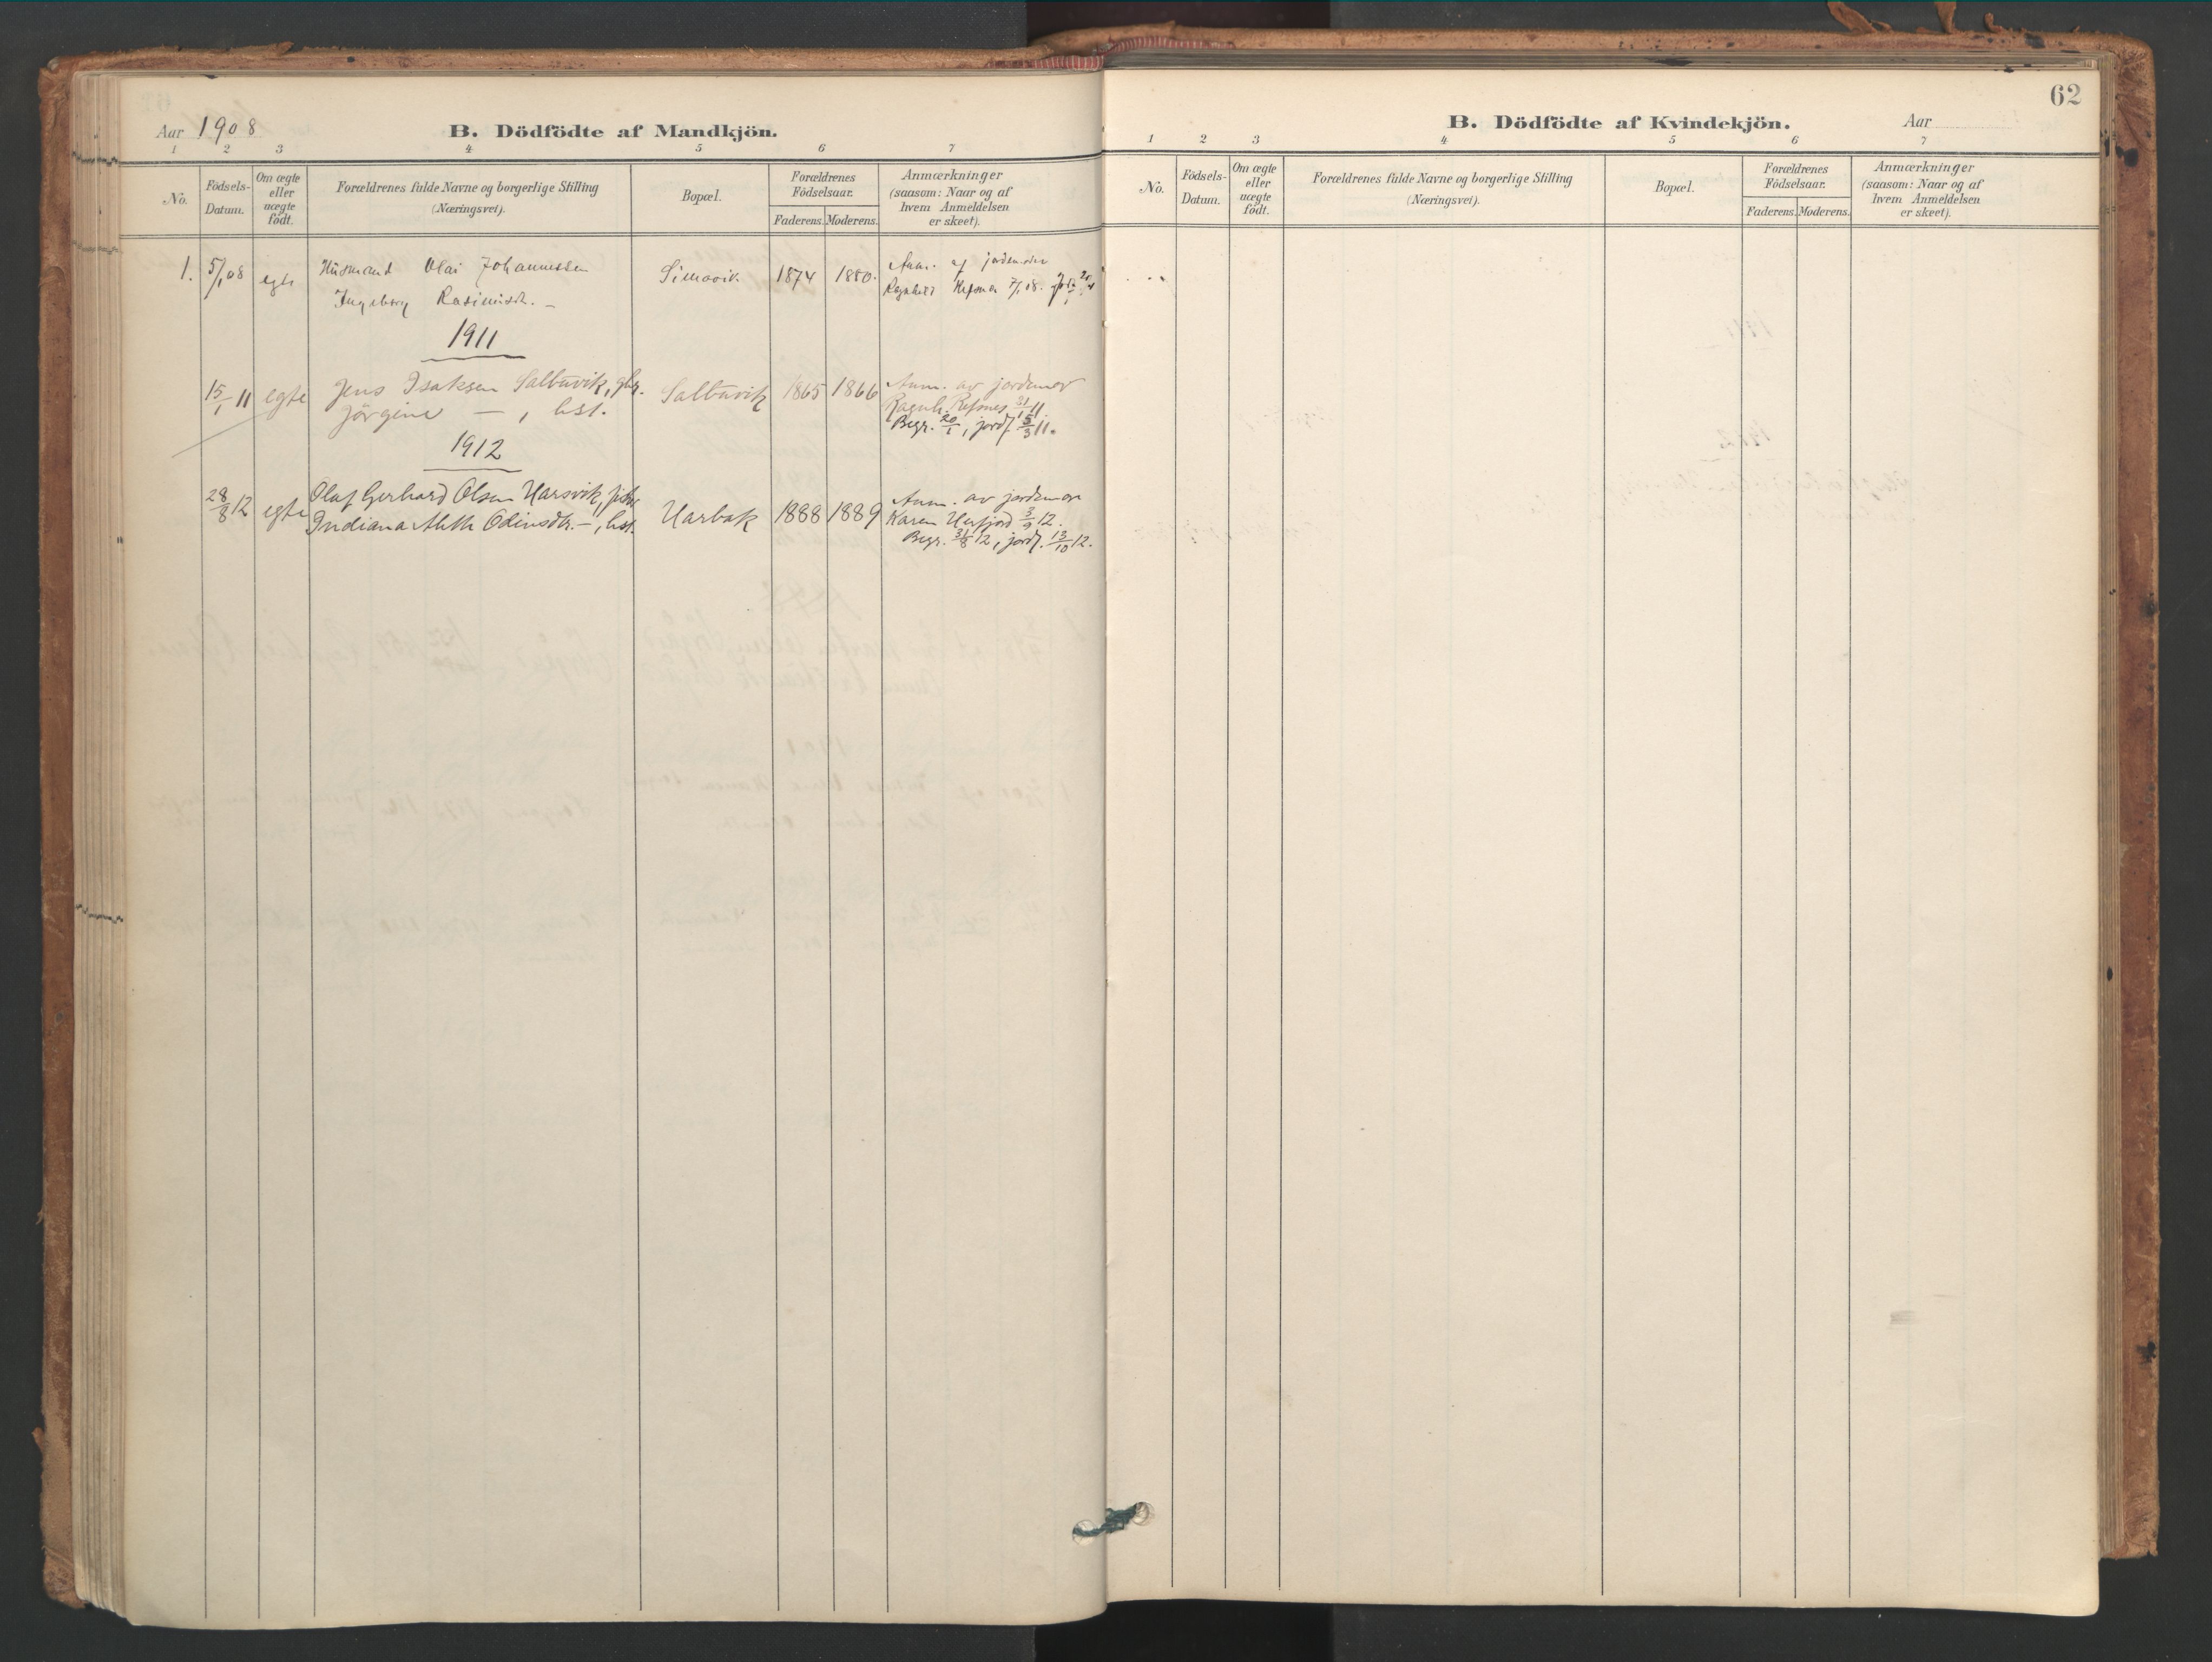 Aar 1908
B. Dödfödte af Mandkjön.
1 2 3 4 5 6 7
No.
Födsels-
Datum.
Om ægte
eller
uægte
födt.
Forældrenes fulde Navne og borgerlige Stilling
(Næringsvei).
Bopæl.
Forældrenes
Födselsaar.
Faderens. Moderens.
Anmærkninger
(saasom: Naar og af
hvem Anmeldelsen
er skeet).
1. 5/1 08 egte Husmand Olai Johannessen Simavik. 1874 1880. Anm. af jordemoder
Ingeborg Rasimusdt. - Ragnhild Refsnes 7/1 08.
1911
15/1 11 egte Jens Isaksen Saltuvik, gbr. Saltuvik 1865 1866 Anm. av jordemor
Jörgine — , hst. Ragnh. Refsnes 31/1 11.
Begr. 20/1, jordf. 5/3 11.
1912
28/8 12 egte Olaf Gerhard Olsen Harsvik, fisker Harbak 1888 1889 Anm. av jordemor
Indiana Odinsdtr. —, hst. Karen Herfjord 3/9 12.
Begr. 31/8 12, jordf. 13/10 12.
62
B. Dödfödte af Kvindekjön.
Aar
1 2 3 4 5 6 7
No.
Födsels-
Datum.
Om ægte
eller
uægte
födt.
Forældrenes fulde Navne og borgerlige Stilling
(Næringsvei).
Bopæl.
Forældrenes
Födselsaar.
Faderens. Moderens.
Anmærkninger
(saasom: Naar og af
hvem Anmeldelsen
er skeet).